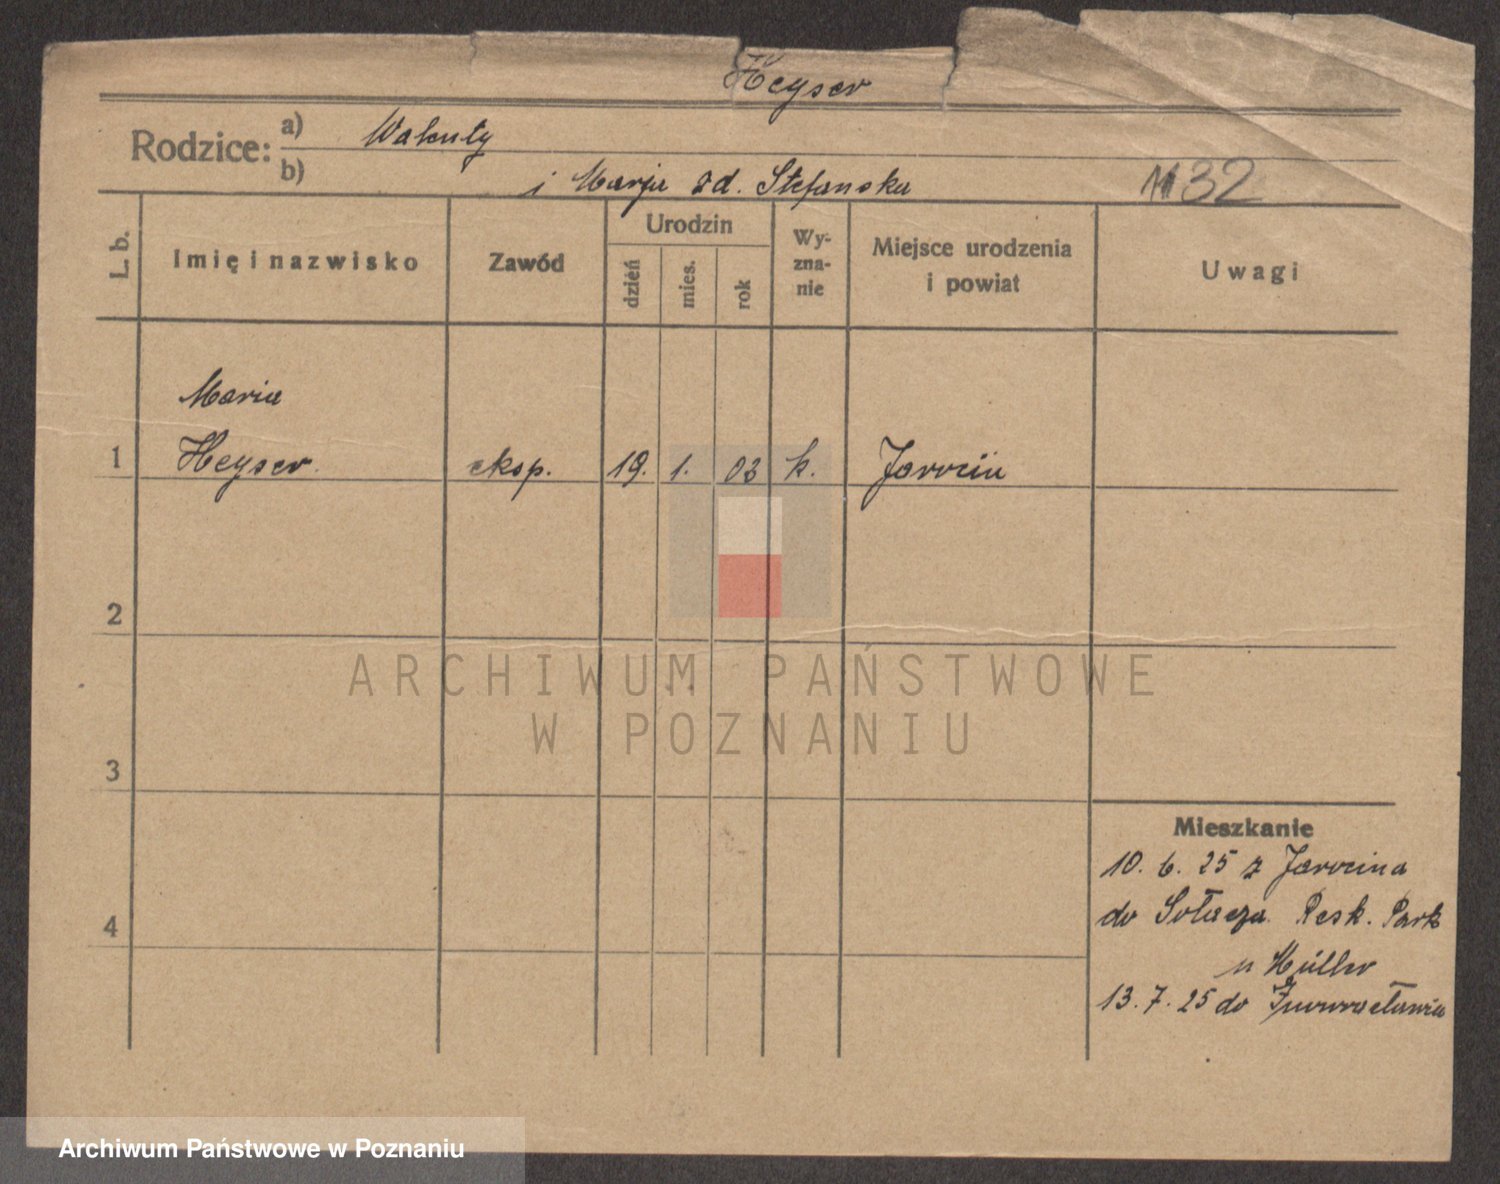 Heyser
Rodzice: a) Walenty
b) i Marja zd. Stefanska
32
L. b. Imię i nazwisko Zawód Urodzin dzień mies. rok Wy- zna- nie Miejsce urodzenia i powiat Uwagi
Maria
1 Heyser. eksp. 19. 1. 03 k. Jarocin
2
ARCHIWUM PAŃSTWOWE
W POZNANIU
3
Mieszkanie
10. 6. 25 z Jarocina
4 do Sołacza. Resk. Park
u Müller
13. 7. 25 do Inowrocławia
Archiwum Państwowe w Poznaniu